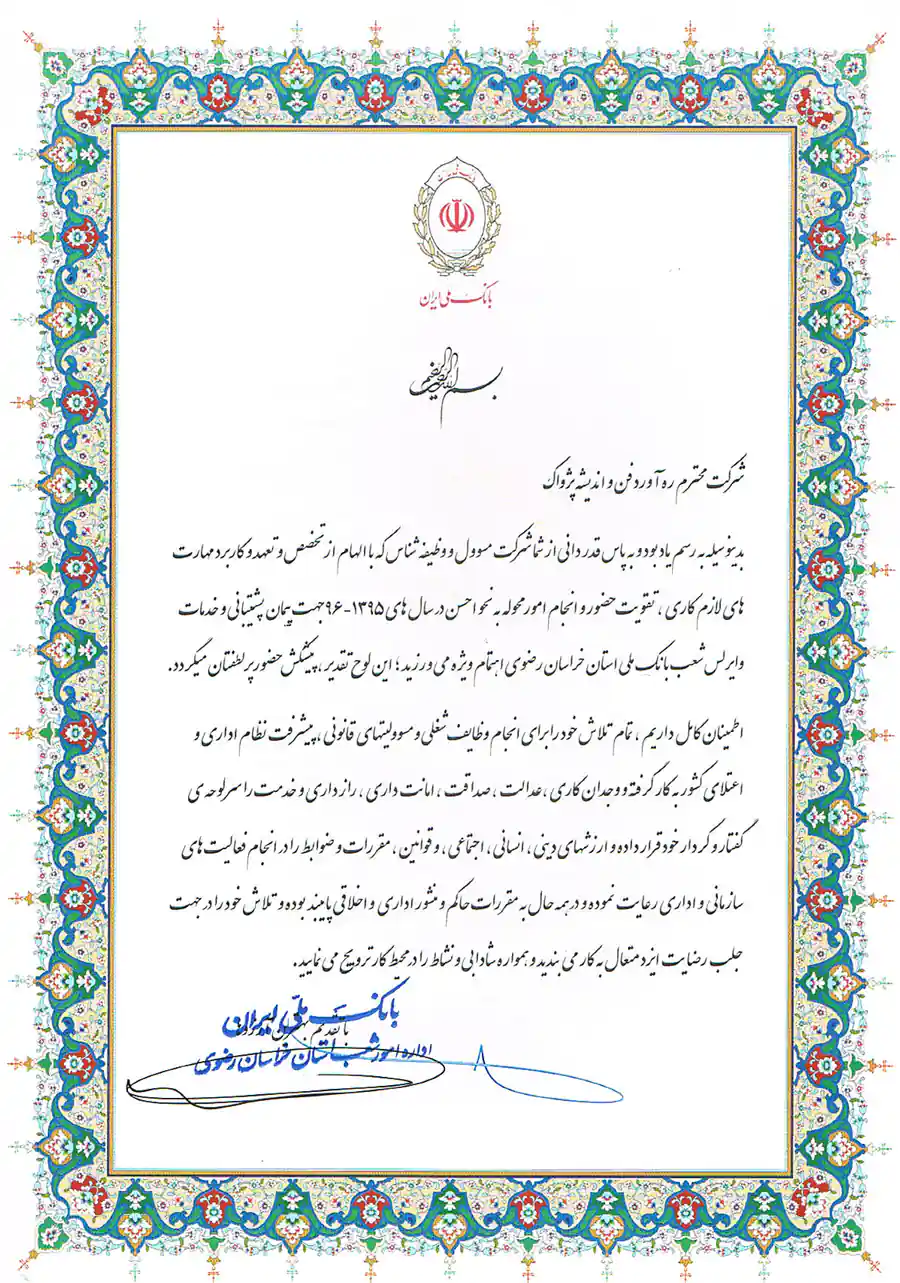 بانک ملی ایران
بسم الله الرحمن الرحیم
شرکت محترم ره آورد فن و اندیشه پژواک
بدینوسیله به رسم یادبود و به پاس قدردانی از شما شرکت مسوول و وظیفه شناس که با الهام از تخصص و تعهد و کاربرد مهارت
های لازم کاری ، تقویت حضور و انجام امور محوله به نحو احسن در سال های ۱۳۹۵-۹۶ جهت پیمان پشتیبانی و خدمات
وایرلس شعب بانک ملی استان خراسان رضوی اهتمام ویژه می ورزید ؛ این لوح تقدیر ، پیشکش حضور پر لطفتان میگردد.
اطمینان کامل داریم ، تمام تلاش خود را برای انجام وظایف شغلی و مسوولیتهای قانونی ، پیشرفت نظام اداری و
اعتلای کشور به کار گرفته و وجدان کاری ، عدالت ، صداقت ، امانت داری ، رازداری و خدمت را سرلوحه ی
گفتار و کردار خود قرار داده و ارزشهای دینی ، انسانی ، اجتماعی ، و قوانین ، مقررات و ضوابط را در انجام فعالیت های
سازمانی و اداری رعایت نموده و در همه حال به مقررات حاکم و منثور اداری و اخلاقی پایبند بوده و تلاش خود را در جهت
جلب رضایت ایزد متعال به کار می بندید و همواره شادابی و نشاط را در محیط کار ترویج می نمایید.
بانک ملی ایران
با تقدیم
اداره امور شعب استان خراسان رضوی